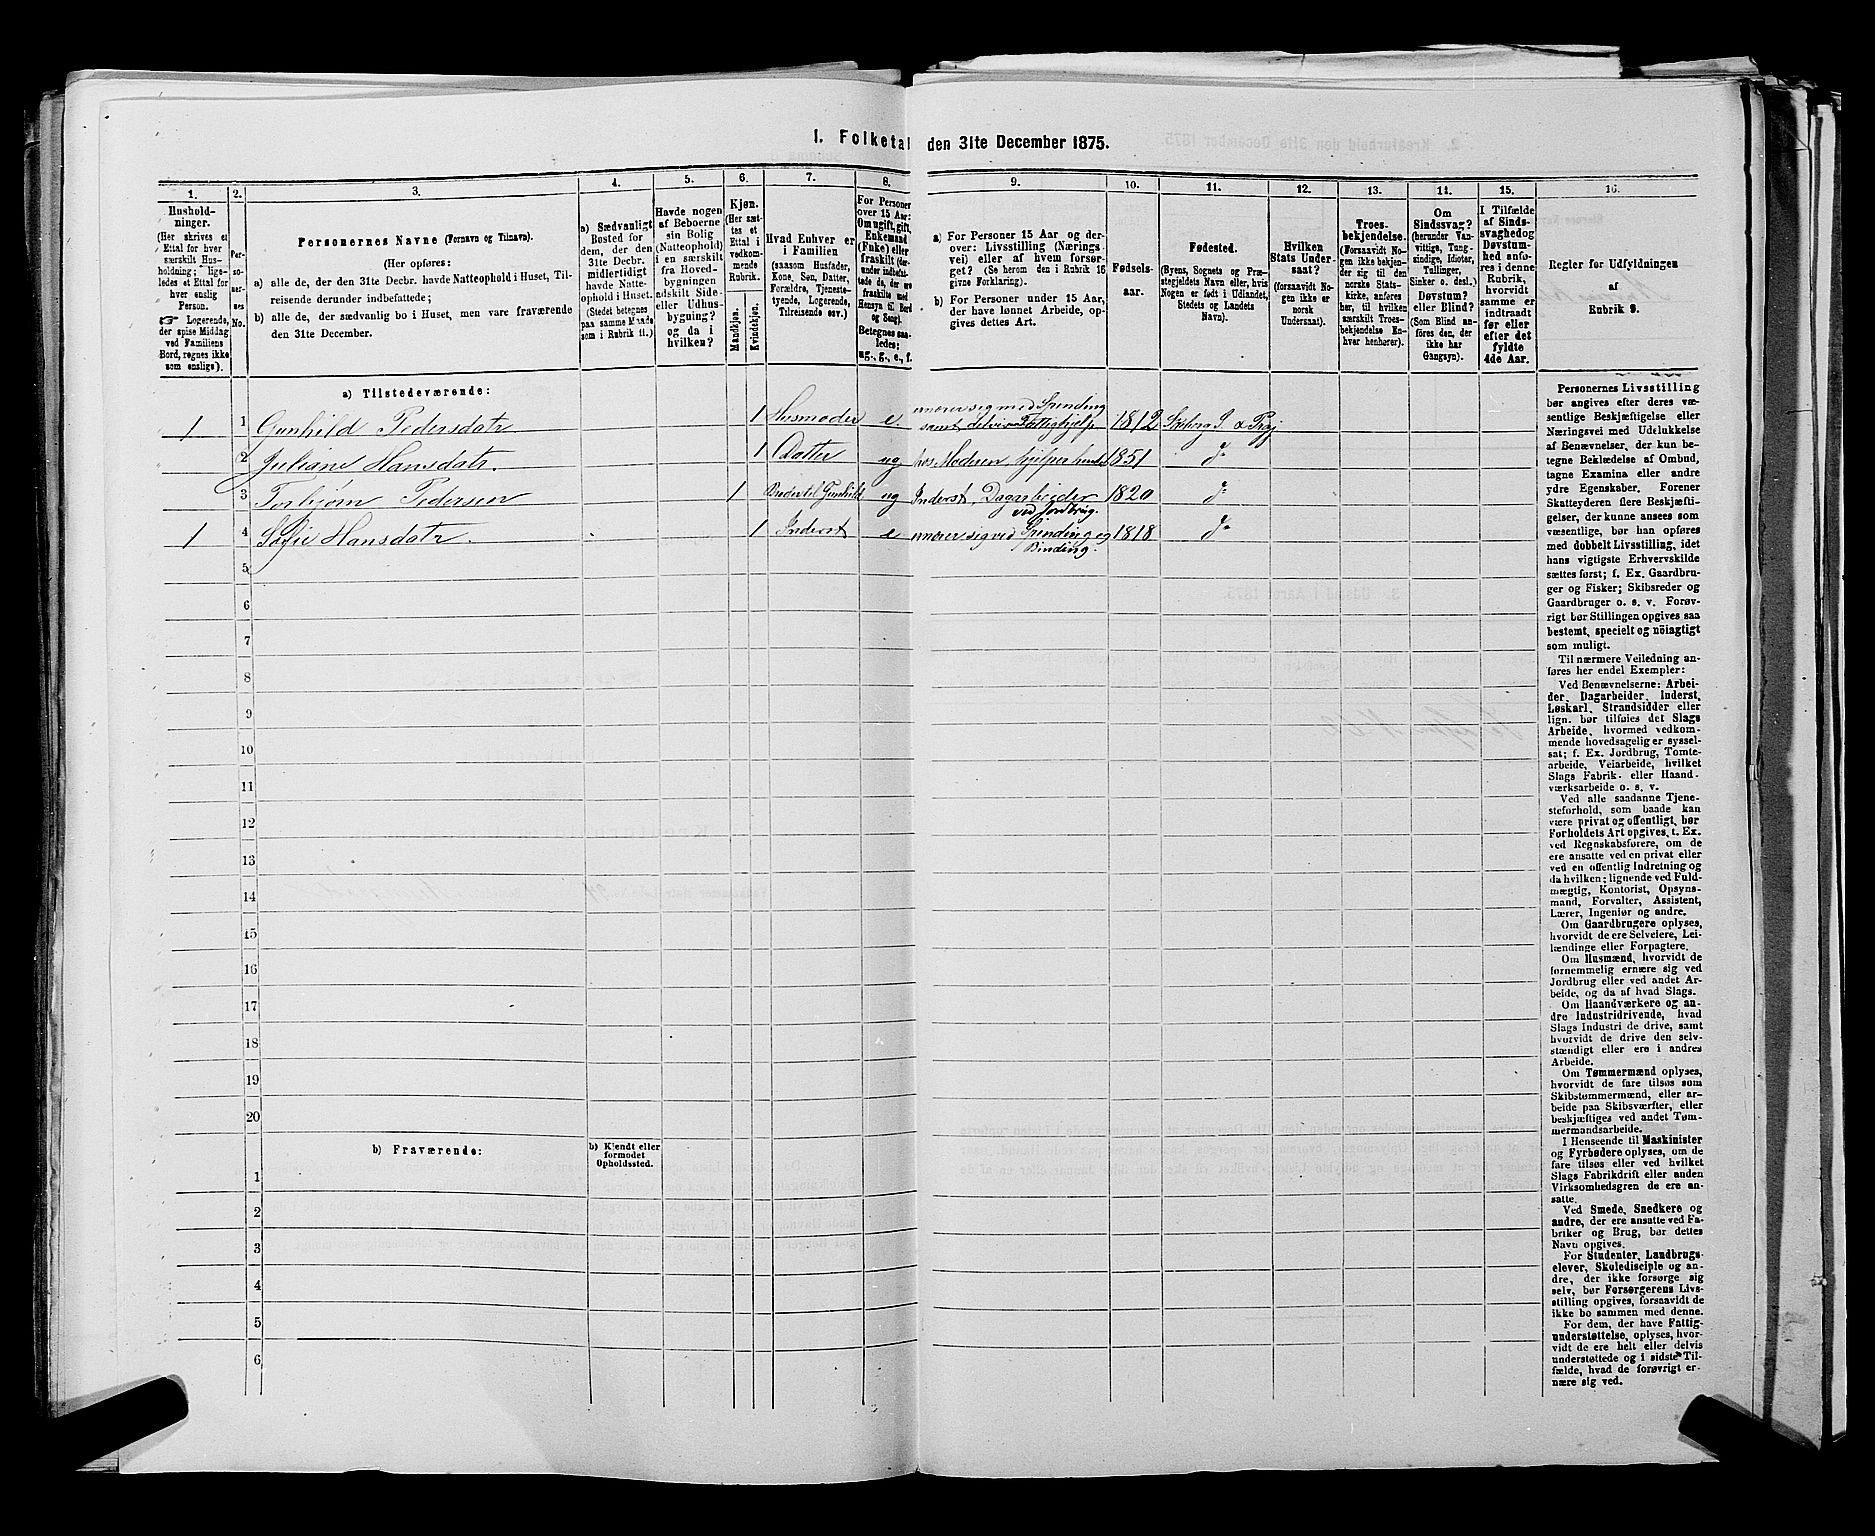 1. Folketal den 31te December 1875.
1.
2.
3.
4.
5.
6.
7.
8.
9.
10.
11.
12.
13.
14.
15.
16.
Hushold-
ninger.
(Her skrives et
Ettal for hver
særskilt Hus-
holdning; lige-
ledes et Ettal for
hver enslig
Person.
☞ Logerende,
der spise Middag
ved Familiens
Bord, regnes ikke
som enslige).
Per-
so-
ner-
nes
No.
Personernes Navne (Fornavn og Tilnavn).
(Her opføres:
a) alle de, der den 31te Decbr. havde Natteophold i Huset, Til-
reisende derunder indbefattede;
b) alle de, der sædvanlig bo i Huset, men vare fraværende
den 31te December.
a) Sædvanligt
Bosted for
dem, der den
31te Decbr.
midlertidigt
havde Natte-
ophold i Huset.
(Stedet betegnes
paa samme Maade
som i Rubrik 11.)
Havde nogen
af Beboerne
sin Bolig
(Natteophold)
i en særskilt
fra Hoved-
bygningen
adskilt Side-
eller Udhus-
bygning?
og da i
hvilken?
Kjøn.
(Her sæt-
tes et
Ettal i
vedkom-
mende
Rubrik.
Mandkjøn.
Kvindekjøn.
Hvad Enhver er
i Familien
(saasom Husfader,
Kone, Søn, Datter,
Forældre, Tjeneste-
tyende, Logerende,
Tilreisende osv.)
For Personer
over 15 Aar:
Om ugift, gift,
Enkemand
(Enke) eller
fraskilt (der-
under indbefat-
tede de, der ere
fraskilte med
Hensyn til Bord
og Seng).
Betegnes saa-
ledes:
ug., g., e., f.
a) For Personer 15 Aar og der-
over: Livsstilling (Nærings-
vei) eller af hvem forsør-
get? (Se herom den i Rubrik 16
givne Forklaring).
b) For Personer under 15 Aar,
der have lønnet Arbeide, op-
gives dettes Art.
Fødsels-
aar.
Fødested.
(Byens, Sognets og Præ-
stegjeldets Navn eller, hvis
Nogen er født i Udlandet,
Stedets og Landets
Navn).
Hvilken
Stats Under-
saat?
(forsaavidt No-
gen ikke er
norsk
Undersaat).
Troes-
bekjendelse.
(Forsaavidt No-
gen ikke bekjen-
der sig til den
norske Stats-
kirke, anføres
her, til hvilken
særskilt Troes-
bekjendelse En-
hver henhører).
Om
Sindssvag?
(herunder Van-
vittige, Tung-
sindige, Idioter,
Tullinger,
Sinker o. desl.)
Døvstum?
eller Blind?
(Som Blind an-
føres den, der
ikke har
Gangsyn).
I Tilfælde
af Sinds-
svaghed og
Døvstum-
hed anfø-
res i denne
Rubrik,
hvorvidt
samme er
indtraadt
før eller
efter det
fyldte
4de Aar.
Regler for Udfyldningen
af
Rubrik 9.
a) Tilstedeværende:
1 1 Gunhild Pedersdatr 1 Husmoder e. ernærer sig med Spinding
samt delvis Fattighjelp 1812
2 Juliane Hansdatr. 1 Datter ug hos Moderen, hjelper hende 1851 do
3 Torbjørn Pedersen 1 Broder til Gunhild ug Inderst, Dagarbeider
ved Jordbrug. 1820 do
1 4 Sofie Hansdatr. 1 Inderst e ernærer sig ved Spinding og
Binding. 1818 do
5
6
7
8
9
10
11
12
13
14
15
16
17
18
19
20
b) Fraværende:
b) Kjendt eller
formodet
Opholdssted.
1
2
3
4
5
6
Personernes Livsstilling
bør angives efter deres væ-
sentlige Beskjæftigelse eller
Næringsvei med Udelukkelse
af Benævnelser, der kun be-
tegne Beklædelse af Ombud,
tagne Examina eller andre
ydre Egenskaber. Forener
Skatteyderen flere Beskjæfti-
gelser, der kunne ansees som
væsentlige, bør han opføres
med dobbelt Livsstilling, idet
hans vigtigste Erhvervskilde
sættes først; f. Ex. Gaardbru-
ger og Fisker; Skibsreder og
Gaardbruger o. s. v. Forøv-
rigt bør Stillingen opgives saa
bestemt, specielt og nöiagtigt
som muligt.
Til nærmere Veiledning an-
føres her endel Exempler:
Ved Benævnelserne: Arbei-
der, Dagarbeider, Inderst,
Løskarl, Strandsidder eller
lign. bør tilføies det Slags
Arbeide, hvormed vedkom-
mende hovedsagelig er syssel-
sat; f. Ex. Jordbrug, Tomte-
arbeide, Veiarbeide, hvilket
Slags Fabrik- eller Haand-
værksarbeide o. s. v.
Ved alle saadanne Tjene-
steforhold, som baade kan
være privat og offentligt, bør
Forholdets Art opgives, t. Ex.
ved Regnskabsførere, om de
ere ansatte ved en privat eller
ved en offentlig Indretning og
da hvilken; lignende ved Fuld-
mægtig, Kontorist, Opsyns-
mand, Forvalter, Assistent,
Lærer, Ingeniør og andre.
Om Gaardbrugere oplyses,
hvorvidt de ere Selveiere, Lei-
lændinge eller Forpagtere.
Om Husmænd, hvorvidt de
fornemmelig ernære sig ved
Jordbrug eller ved andet Ar-
beide, og da af hvad Slags.
Om Haandværkere og an-
dre Industridrivende, hvad
Slags Industri de drive, samt
hvorvidt de drive den selv-
stændigt eller ere i andres
Arbeide.
Om Tømmermænd oplyses,
hvorvidt de fare tilsøs som
Skibstømmermænd, eller ar-
beide paa Skibsværfter, eller
beskjæftiges ved andet Tøm-
mermandsarbeide.
I Henseende til Maskinister
og Fyrbødere oplyses, om de
fare tilsøs eller ved hvilket
Slags Fabrikdrift eller anden
Virksomhedsgren de ere an-
satte.
Ved Smede, Snedkere og
andre, der ere ansatte ved Fa-
briker og Brug, bør dettes
Navn opgives.
For Studenter, Landbrugs-
elever, Skoledisciple og an-
dre, der ikke forsørge sig
selv, bør Forsørgerens Livs-
stilling opgives, forsaavidt de
ikke bo sammen med denne.
For dem, der have Fattig-
understøttelse, oplyses, hvor-
vidt de ere helt eller delvis
understøttede og i sidste Til-
fælde, hvad de forøvrigt er-
nære sig ved.